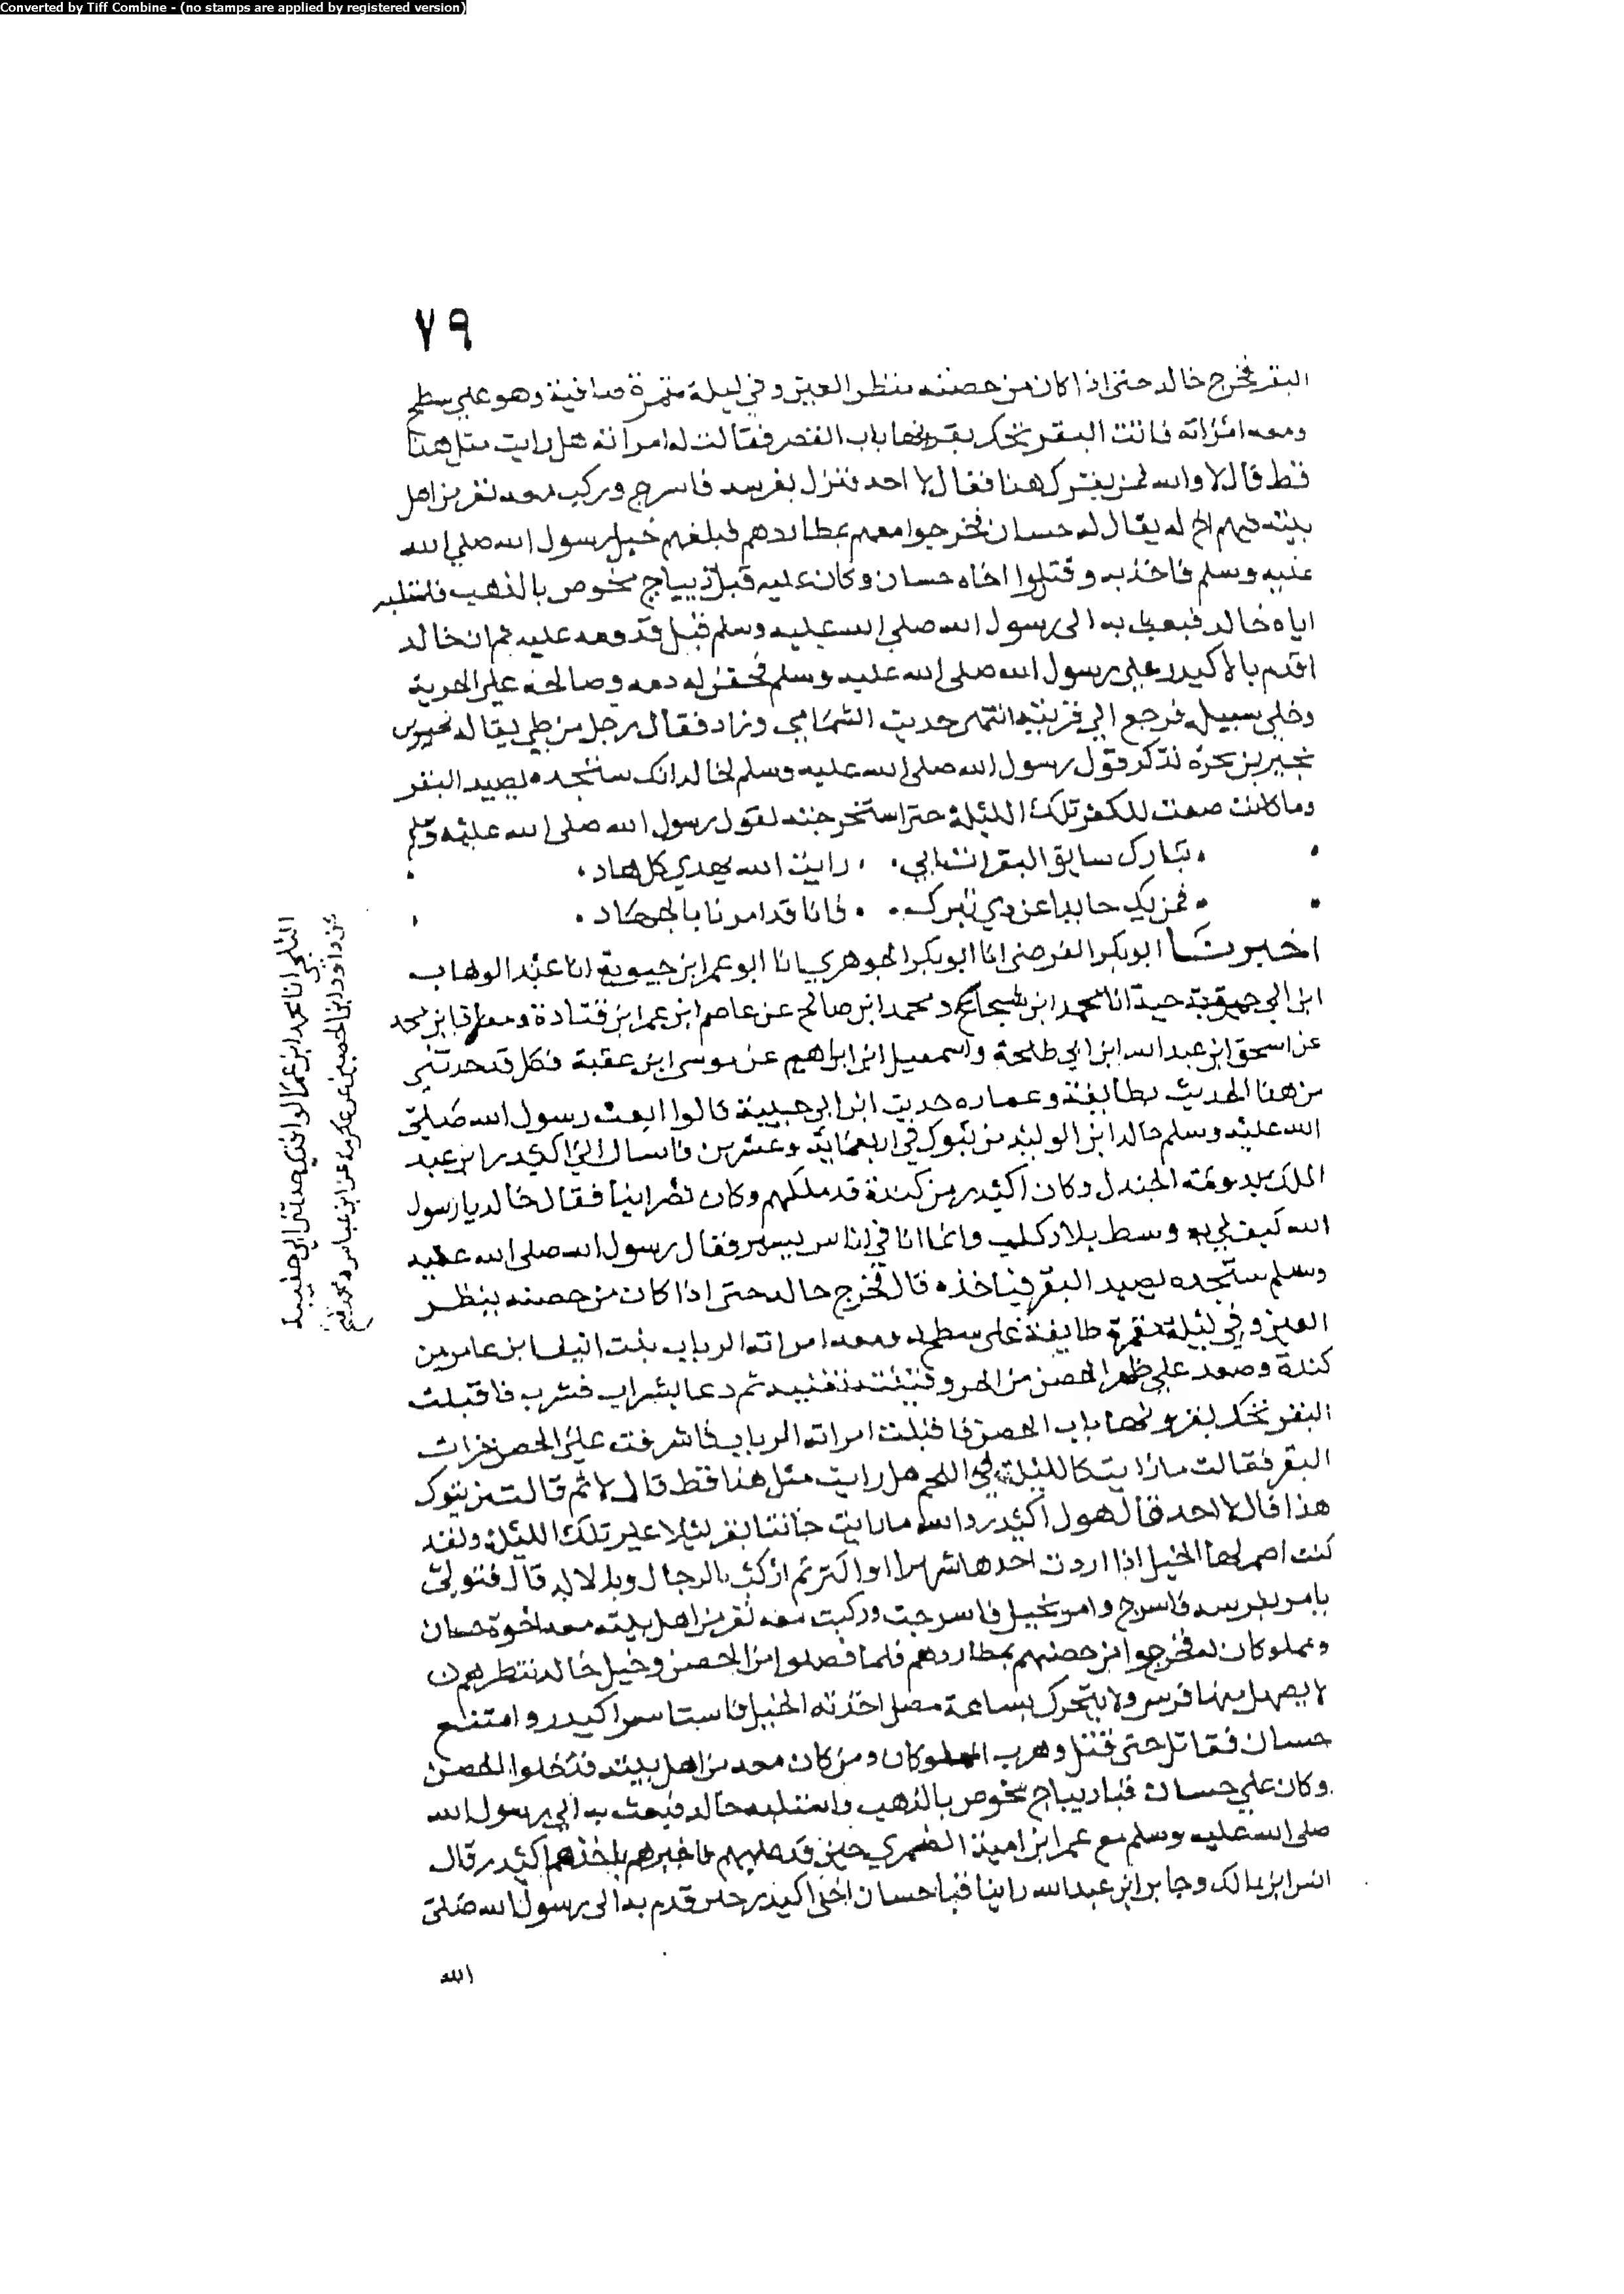 Converted by Tiff Combine - (no stamps are applied by registered version)
٧٩
البقر فخرج خالد حتى اذا كان من حصنه منظر العين وفي ليلة مقمرة صافية وهو على سطح
ومعه امراته فاتت البقر تحك بقرونها باب القصر فقالت له امراته هل رايت مثل هذا
قط قال لا والله فمن يترك هذا فقال لا احد فنزل بفرسه فاسرج وركب معه نفر من اهل
بيته فيهم اخ له يقال له حسان فخرجوا معهم بمطاردهم فبلغهم خيل رسول الله صلى الله
عليه وسلم فاخذ به وقتلوا اخاه حسان وكان عليه قبا ديباج مخوص بالذهب فاستلبه
اياه خالد فبعث به الى رسول الله صلى الله عليه وسلم قبل قدومه عليه ثم ان خالد
اقدم بالاكيدر على رسول الله صلى الله عليه وسلم فحقن له دمه وصالحه على الجزية
وخلى سبيله فرجع الى قريته انتهى حديث الشحامي وزاد فقال رجل من طي يقال له
بجير بن بحرة تذكر قول رسول الله صلى الله عليه وسلم لخالد انك ستجده يصيد البقر
وما كانت صنعت للكفر تلك الليلة حتى استخرجته لقول رسول الله صلى الله عليه وسلم
تبارك سايق البقرات اني رايت الله يهدي كل هاد
فمن يك حايدا عن ذي تبوك فانا قد امرنا بالجهاد
اخبرنا ابو بكر الفرضي انا ابو بكر الجوهري انا ابو عمر ابن حيوية انا عبد الوهاب
ابن ابي حية انا محمد ابن شجاع ومحمد ابن صالح عن عاصم ابن عمر ابن قتادة ومعاذ ابن محمد
عن اسحق ابن عبد الله ابن ابي طلحة واسمعيل ابن ابراهيم عن موسى ابن عقبة فكل قد حدثني
من هذا الحديث بطايفة وعماده حديث ابن ابي حبيبة قالوا ابعث رسول الله صلى
الله عليه وسلم خالد ابن الوليد من تبوك في اربعماية وعشرين فارسا الى اكيدر ابن عبد
الملك بدومة الجندل وكان اكيدر من كندة قد ملكهم وكان نصرانيا فقال خالد يا رسول
الله كيف لي به وسط بلاد كلب وانما انا في اناس يسير فقال رسول الله صلى الله عليه
وسلم ستجده يصيد البقر فياخذه قال فخرج خالد حتى اذا كان من حصنه بنظر
العين وفي ليلة مقمرة طايفة على سطح ومعه امراته الرباب بنت انيف ابن عامر من
كندة وصعد على ظهر الحصن من الحر وقينته تغنيه ثم دعا بشراب فشرب فاقبلت
البقر تحك بقرونها باب الحصن فاقبلت امراته الرباب فاشرفت على الحصن فرات
البقر فقالت ما رايت كالليلة في اللحم هل رايت مثل هذا قط قال لا ثم قالت من يترك
هذا قال لا احد قال يقول اكيدر والله ما رايت جاتنا بقر ليلا غير تلك الليلة ولقد
كنت اضمر لها الخيل اذا اردت اخذها شهرا او اكثر ثم اركب بالرجال وبالالة قال فنزل
فامر بفرسه فاسرج وامر بخيل فاسرجت وركبت معه نفر من اهل بيته معه اخوه حسان
ومملوكان له فخرجوا من حصنهم بمطاردهم فلما فصلوا من الحصن وخيل خالد تنتظرهم
لا يصهل منها فرس ولا يتحرك فساعة فصل اخذته الخيل فاستاسر اكيدر وامتنع
حسان فقاتل حتى قتل وهرب المملوكان ومن كان معه من اهل بيته فدخلوا الحصن
وكان على حسان قبا ديباج مخوص بالذهب فاستلبه خالد فبعث به الى رسول الله
صلى الله عليه وسلم مع عمر ابن امية الضمري حين قدم عليهم فاخبرهم باخذهم اكيدر قال
انس ابن مالك وجابر ابن عبد الله راينا قبا حسان اخي اكيدر حين قدم به الى رسول الله صلى
الله
الثلجي انا محمد ابن عمر الواقدي حدثني ابن ابي حبيبة
عن داود ابن الحصين عن عكرمة عن ابن عباس ومحمد